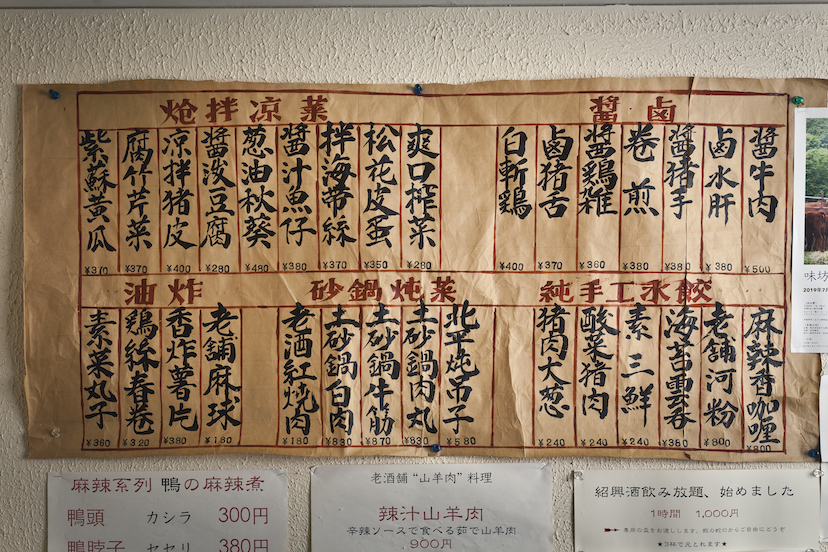 醬鹵
醬牛肉 ¥500
鹵水肝 ¥380
醬猪手 ¥380
卷煎 ¥380
醬鷄雑 ¥360
鹵猪舌 ¥370
白斬鷄 ¥400
炝拌凉菜
爽口榨菜 ¥280
松花皮蛋 ¥350
拌海帯絲 ¥370
醬汁魚仔 ¥380
葱油秋葵 ¥480
醬汲豆腐 ¥280
凉拌猪皮 ¥400
腐竹芹菜 ¥370
紫蘇黃瓜 ¥370
純手工水餃
麻辣香咖喱 ¥800
老舗河粉 ¥800
海苔雲呑 ¥380
素三鮮 ¥240
酸菜猪肉 ¥240
猪肉大葱 ¥240
砂鍋炖菜
北平炖吊子 ¥580
土砂鍋肉丸 ¥830
土砂鍋牛筋 ¥870
土砂鍋白肉 ¥830
老酒紅焼肉 ¥180
油炸
老舗麻球 ¥180
香炸薯片 ¥380
鷄絲春卷 ¥320
素菜丸子 ¥360
味坊
2019年7
麻辣系列 鴨の麻辣煮
鴨頭 カシラ 300円
鴨脖子 セセリ 380円
老酒舗“山羊肉”料理
辣汁山羊肉
辛辣ソースで食べる茹で山羊肉
900円
紹興酒飲み放題、始めました
1時間 1,000円
★3杯で元とれます★